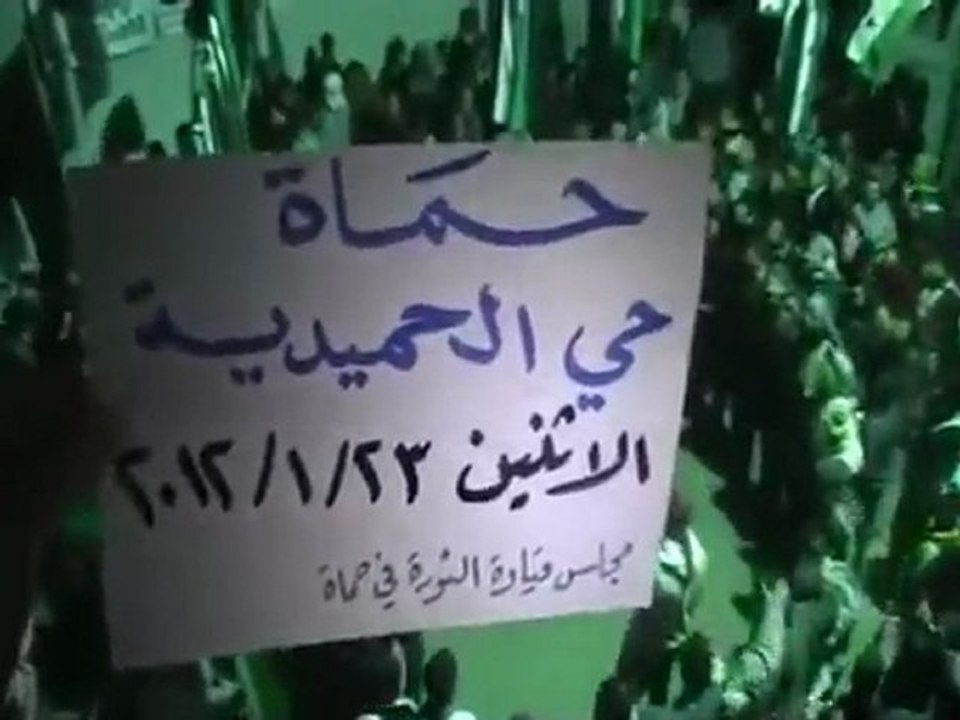 حَمَاة
حي الحميدية
الاثنين ٢٠١٢/١/٢٣
مجلس قيادة الثورة في حماة